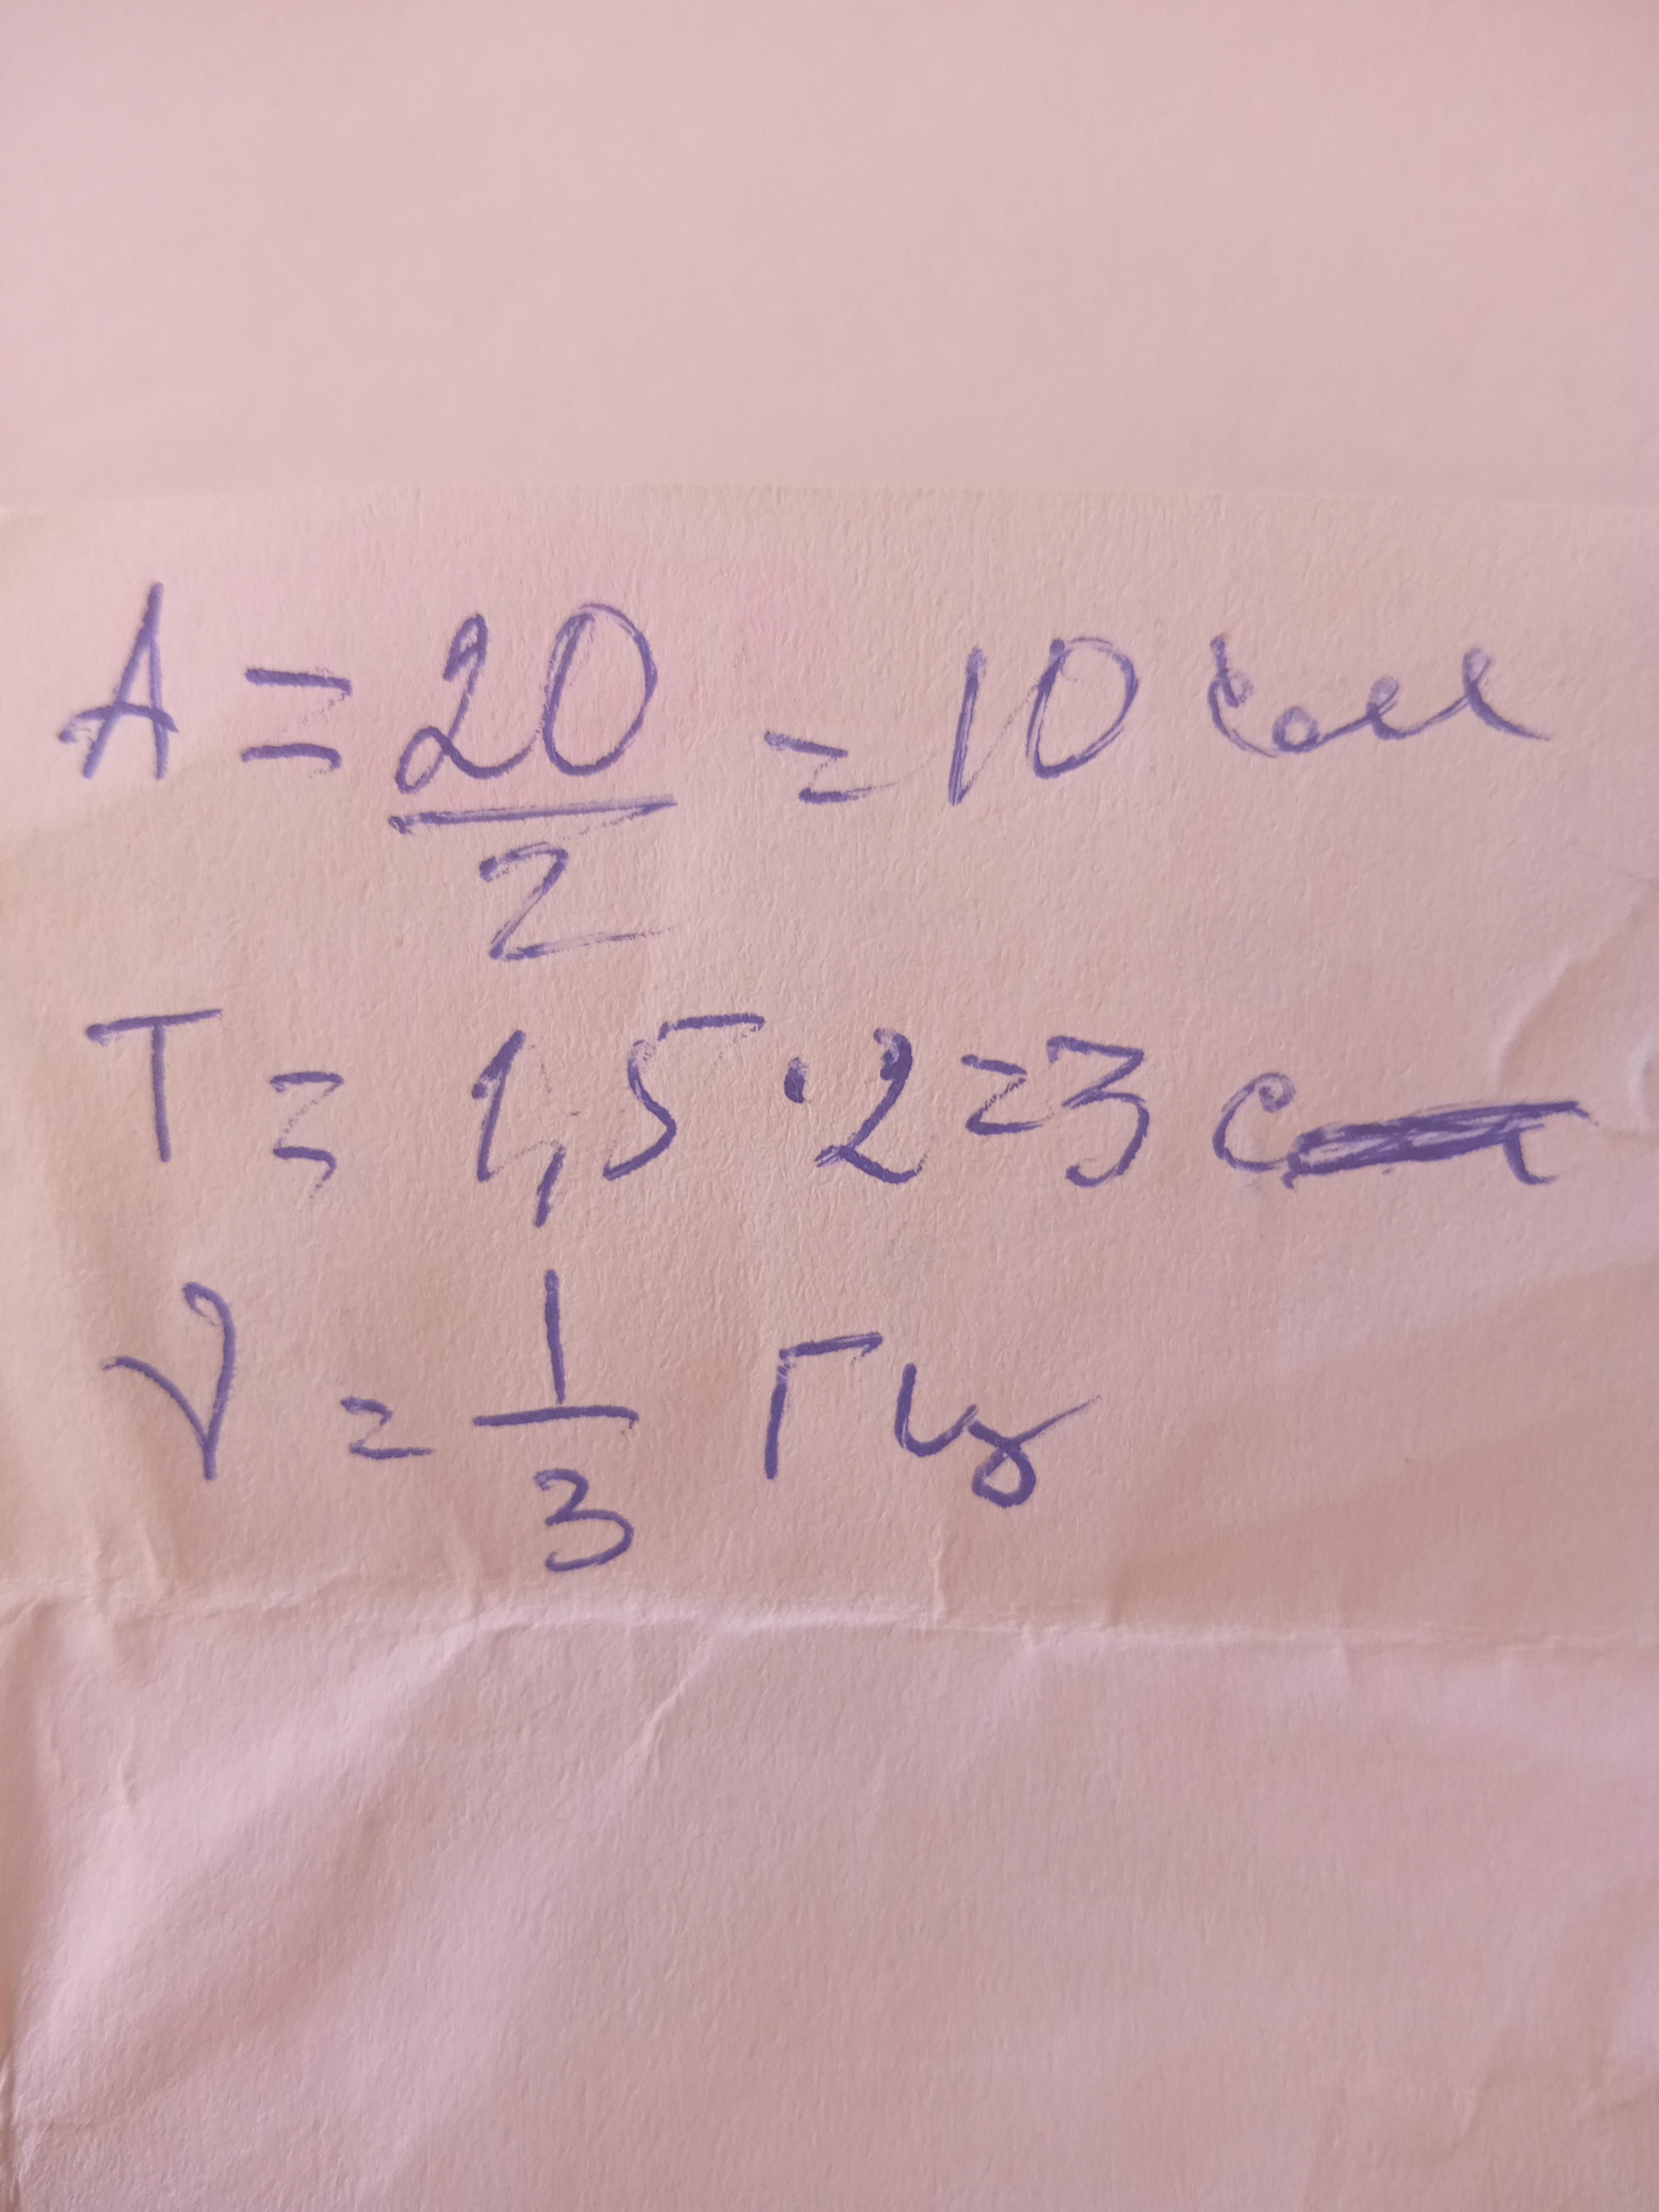 A = 20/2 = 10 см
T = 1,5 · 2 = 3 с
ν = 1/3 Гц